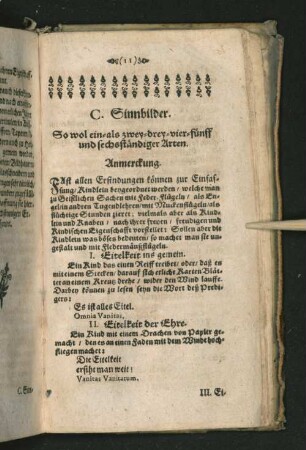 (11)
C. Sinnbilder.
So wol ein-als zwey-drey-vier-fünff
und sechsständiger Arten.
Anmerckung.
FAst allen Erfindungen können zur Einfas-
sung/Kindlein beygeordnet werden/ welche man
zu Geistlichen Sachen mit Feder-Flügeln/ als En-
gelein andern Tugendlehren mit Muckenflügeln/als
flüchtiger Stunden zieret: vielmals aber als Kind-
lein und Knaben / nach ihrer freyen / freudigen und
Kindischen Eigenschafft vorstellet: Sollen aber die
Kindlein was böses bedeuten/ so machet man sie un-
gestalt und mit Fledermäusflügeln.
I. Eitelkeit ins gemein.
Ein Kind das einen Reiff treibet: oder/ daß es
mit einem Stecken/ darauf sich etliche Karten Blät-
ter an einem Kreutz drehe / wider den Wind lauffe.
Darbey können zu lesen seyn die Wort deß Predi-
gers:
Es ist alles Eitel.
Omnia Vanitas,
II. Eitelkeit der Ehre.
Ein Kind mit einem Drachen von Papier ge-
macht / den es an einem Faden mit dem Winde hoch
fliegen machet:
Die Eitelkeit
ersiht man weit:
Vanitas Vanitatum.
III. Ei-